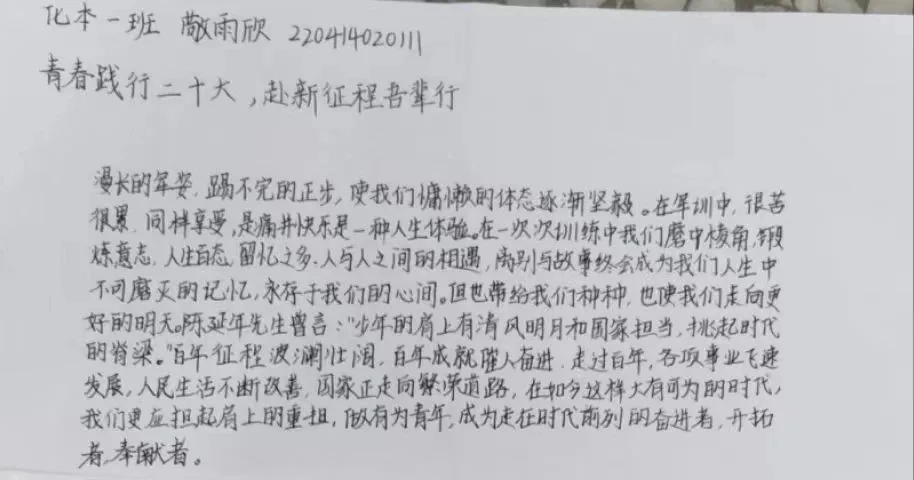 化本一班 敞雨欣 220414020111
青春践行二十大，赴新征程吾辈行
漫长的军姿，踢不完的正步，使我们慵懒的体态逐渐坚毅。在军训中，很苦
很累，同样享受，是痛并快乐是一种人生体验。在一次次训练中我们磨中棱角，锻
炼意志，人生百态，留忆之多，人与人之间的相遇，离别与故事终会成为我们人生中
不可磨灭的记忆，永存于我们的心间。但也带给我们种种，也使我们走向更
好的明天。陈延年先生曾言："少年的肩上有清风明月和国家担当，挑起时代
的脊梁。"百年征程波澜壮阔，百年成就催人奋进，走过百年，各项事业飞速
发展，人民生活不断改善，国家正走向繁荣道路，在如今这样大有可为的时代，
我们更应担起肩上的重担，做有为青年，成为走在时代前列的奋进者，开拓
者，奉献者。